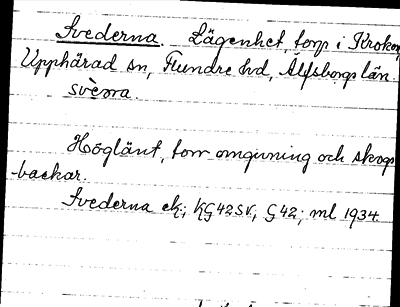 Svederna. Lägenhet, torp i Krokon
Upphärad sn, Flundre hd, Älfsborgs län.
svèɷra.
Högländt, torr omgivning och skogs
-backar.
Svederna ek; KG42SV, G42; ml 1934